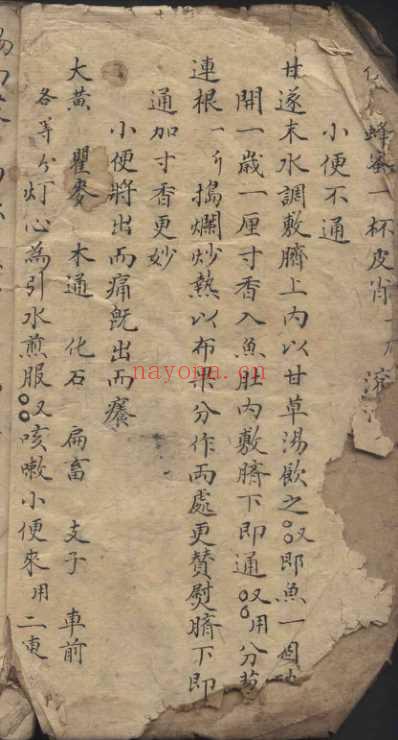 蜂蜜一杯皮肖一
小便不通
甘遂末水調敷臍上内以甘草湯飲之又即魚一個
開一歲一厘寸香入魚肚内敷臍下即通又用分葱
連根一斤搗爛炒熱以布果分作両處更贊熨臍下即
通加寸香更妙
小便將出而痛旣出而癢
大黄 瞿麥 木通 化石 扁畜 支子 車前
各等分灯心為引水煎服又咳嗽小便來用二東
nayona.cn